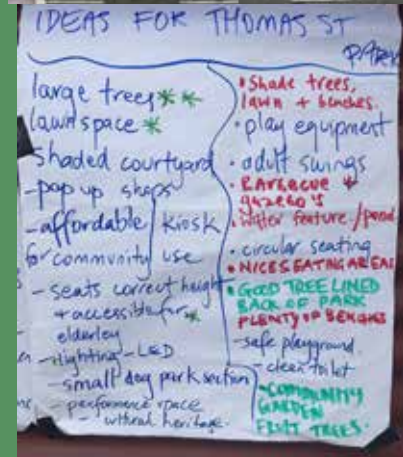 IDEAS FOR THOMAS ST
large trees**
lawn space*
shaded courtyard
-pop up shops
-affordable / kiosk
for community use
- seats correct height
+ accessible for*
elderley
-lighting - LED
-small dog park section
- performance space
- cultural heritage.
• Shade trees,
lawn + benches.
• play equipment
• adult swings
• BARBECUE +
gazebo's
• Water feature / pond
• circular seating
• NICE SEATING AREAS
• GOOD TREE LINED
BACK OF PARK
PLENTY OF BENCHES
-safe playground.
- clean toilet
-COMMUNITY
GARDEN
FRUIT TREES.